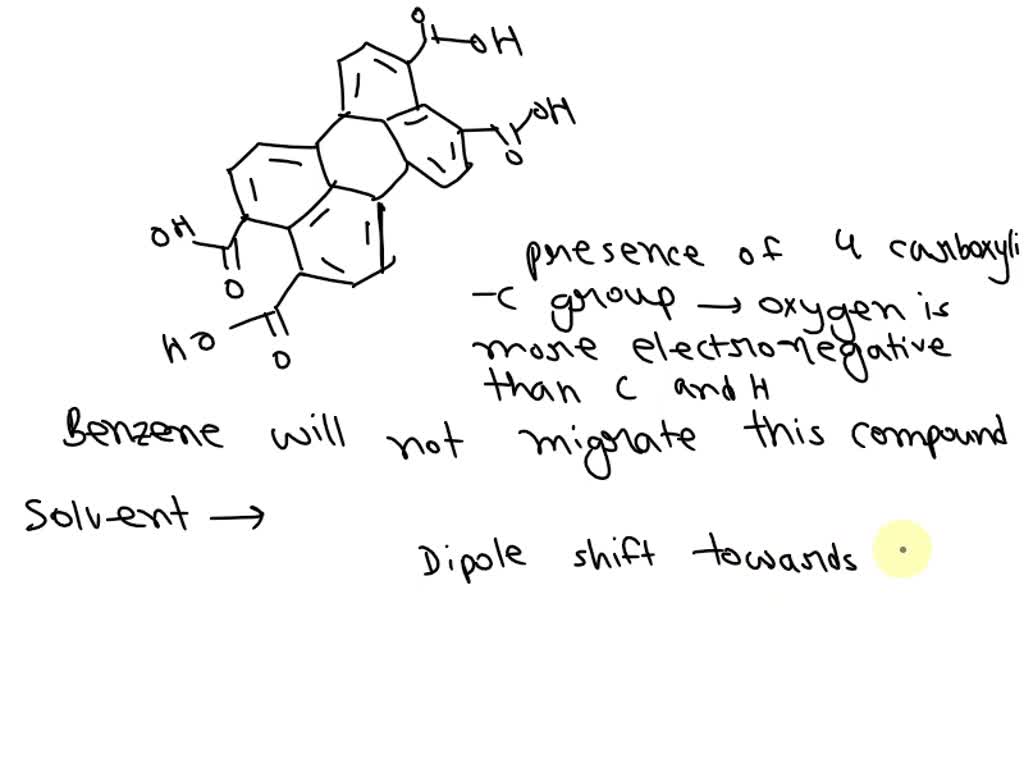 O
OH
OH
O
OH
O
HO
O
presence of 4 carboxyli
-c group → oxygen is
more electronegative
than C and H
Benzene will not migrate this compound
Solvent →
Dipole shift towards